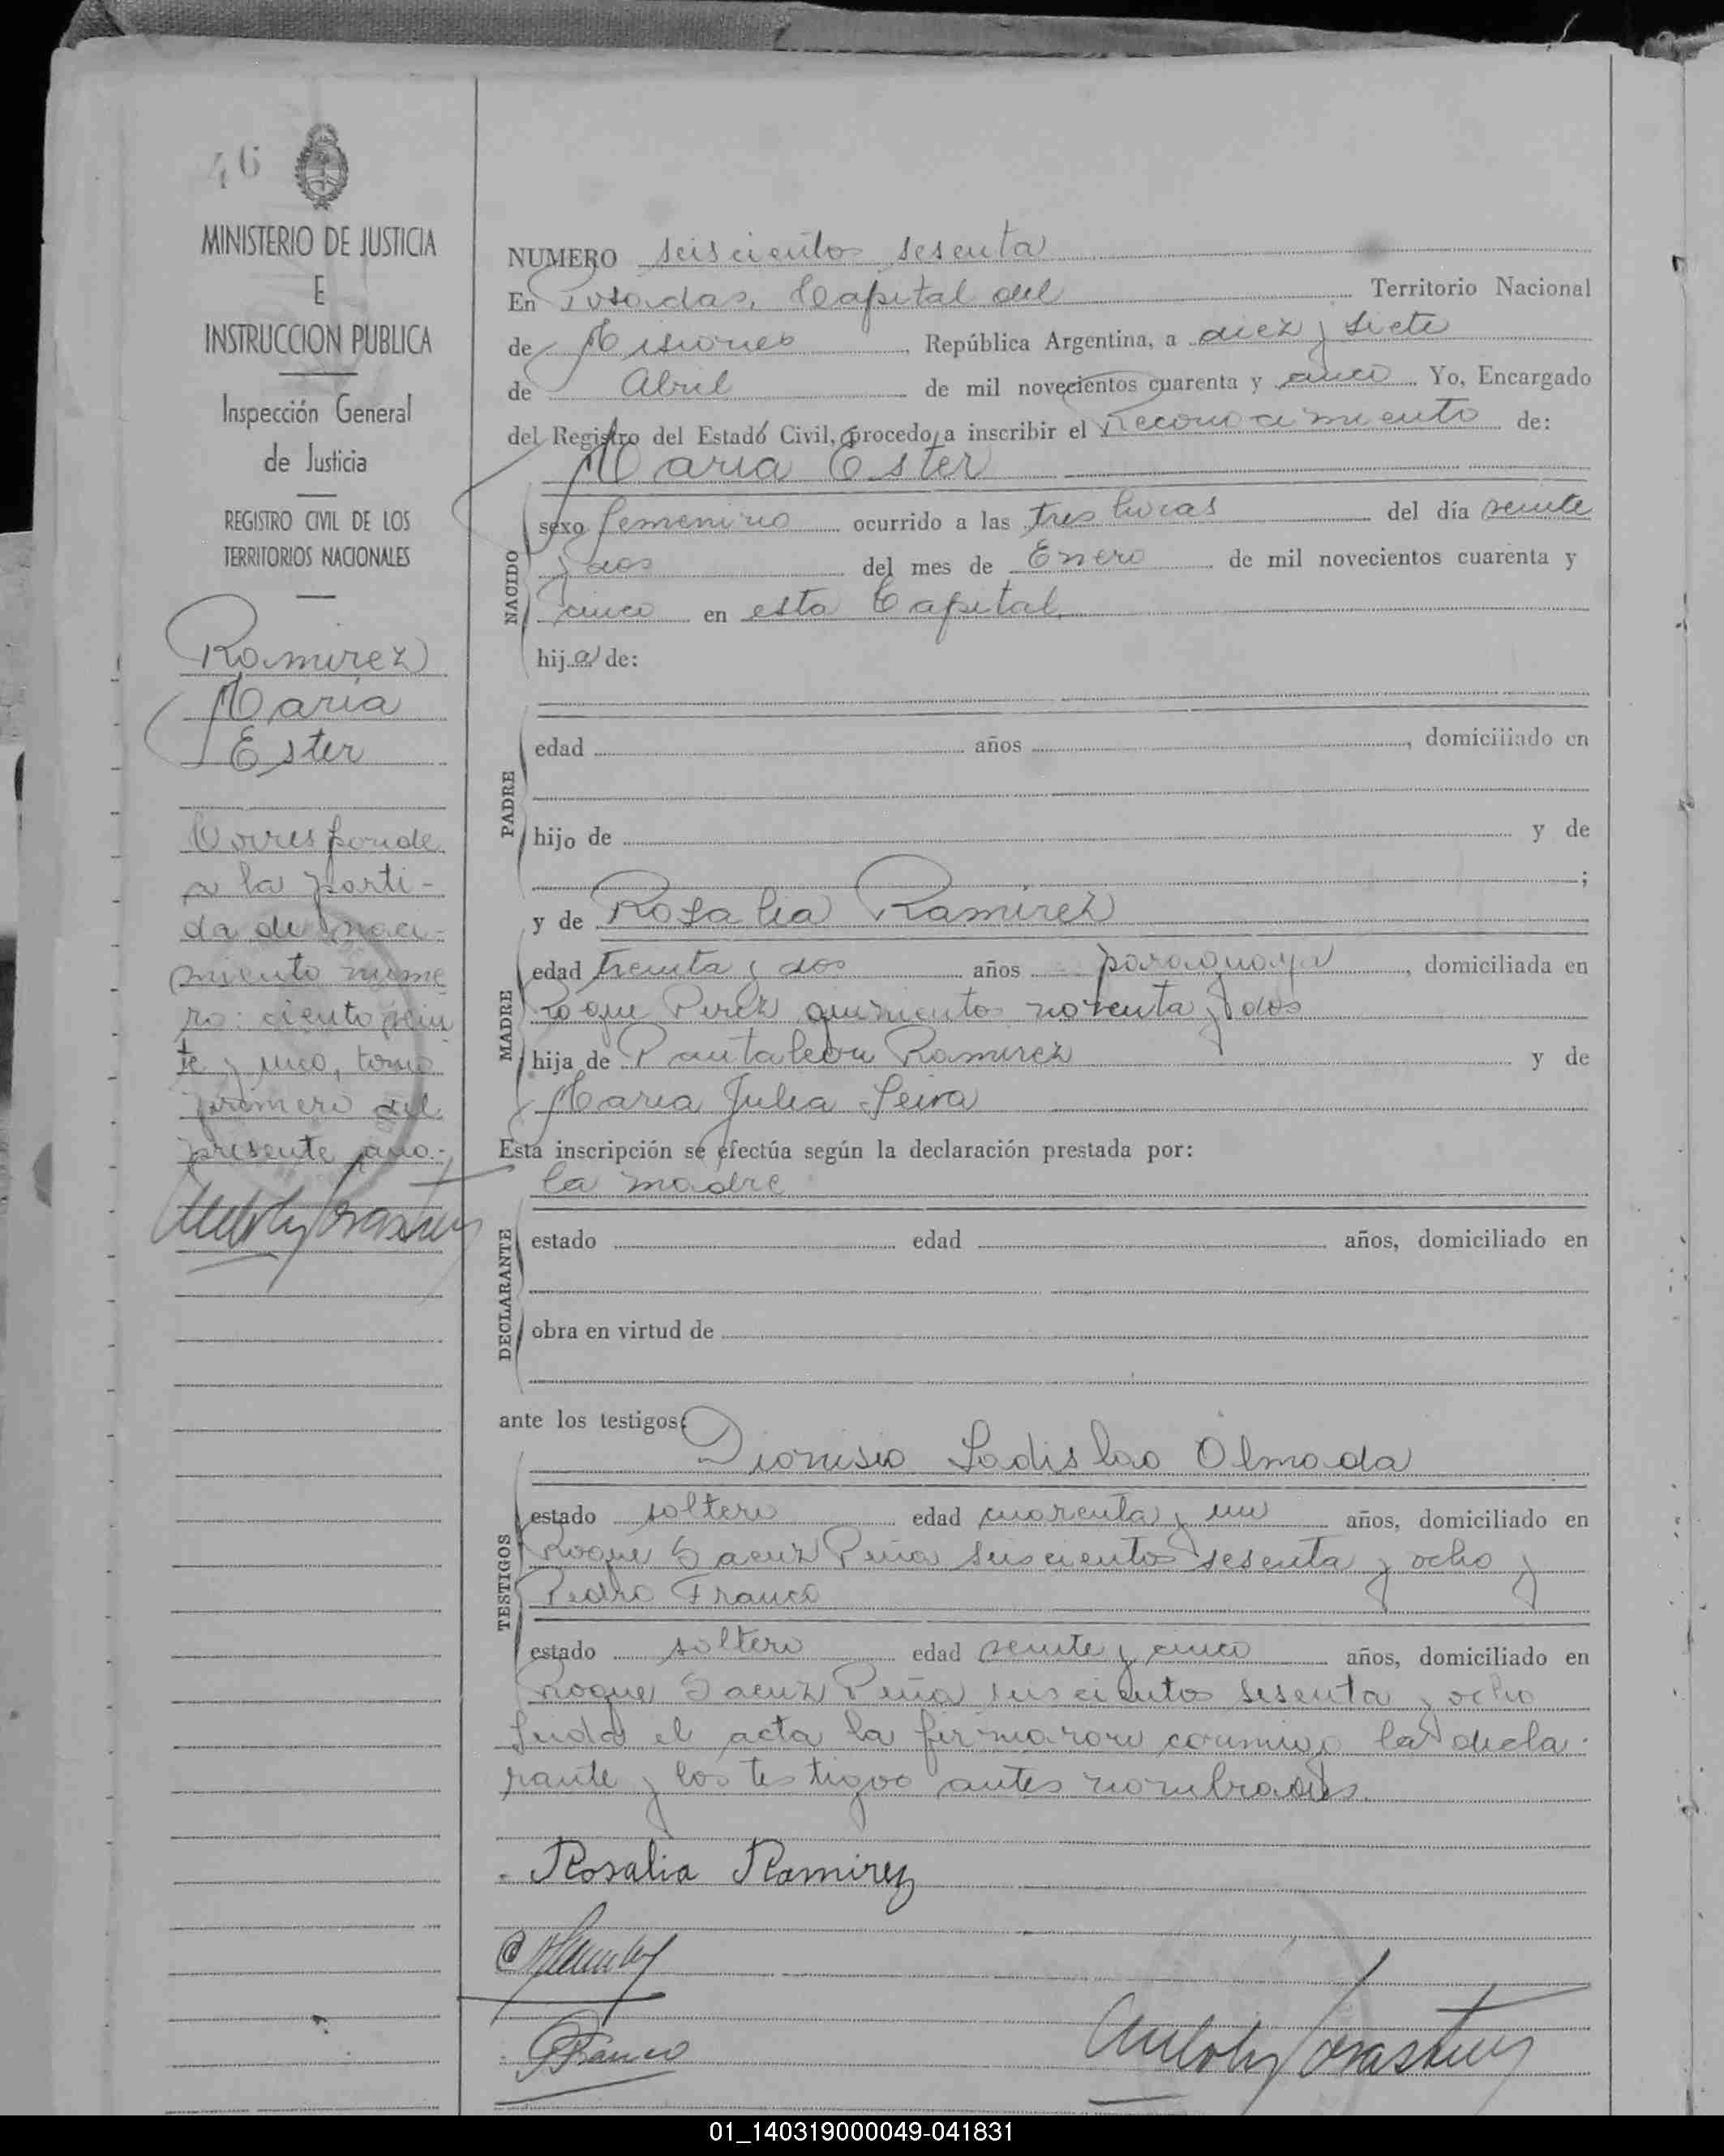 46
MINISTERIO DE JUSTICIA
E
INSTRUCCION PUBLICA
Inspección General
de Justicia
REGISTRO CIVIL DE LOS
TERRITORIOS NACIONALES
Ramirez
María
Ester
Corresponde
a la parti-
da de naci-
miento núme
ro: ciento vein
te y uno, tomo
primero del
presente año.-
NUMERO seiscientos sesenta
En Posadas, Capital del Territorio Nacional
de Misiones, República Argentina, a diez y siete
de Abril de mil novecientos cuarenta y cinco Yo, Encargado
del Registro del Estado Civil, procedo a inscribir el Reconocimiento de:
Maria Ester
NACIDO
sexo femenino ocurrido a las tres horas del día veinte
y dos del mes de Enero de mil novecientos cuarenta y
cinco en esta Capital
hija de:
PADRE
edad años , domiciliado en
hijo de y de
;
y de Rosalia Ramírez
MADRE
edad treinta y dos años paraguaya, domiciliada en
Roque Perez quinientos noventa y dos
hija de Pantaleon Ramirez y de
Maria Julia Leiva
Esta inscripción se efectúa según la declaración prestada por:
la madre
DECLARANTE
estado edad años, domiciliado en
obra en virtud de
ante los testigos:
Dionisio Ladislao Olmada
TESTIGOS
estado soltero edad cuarenta y un años, domiciliado en
Roque Saenz Peña seiscientos sesenta y ocho y
Pedro Franco
estado soltero edad veinte y cinco años, domiciliado en
Roque Saenz Peña seiscientos sesenta y ocho
Leida el acta la firmaron conmigo la decla-
rante y los testigos antes nombrados.
Rosalia Ramirez
PFranco
01_140319000049-041831